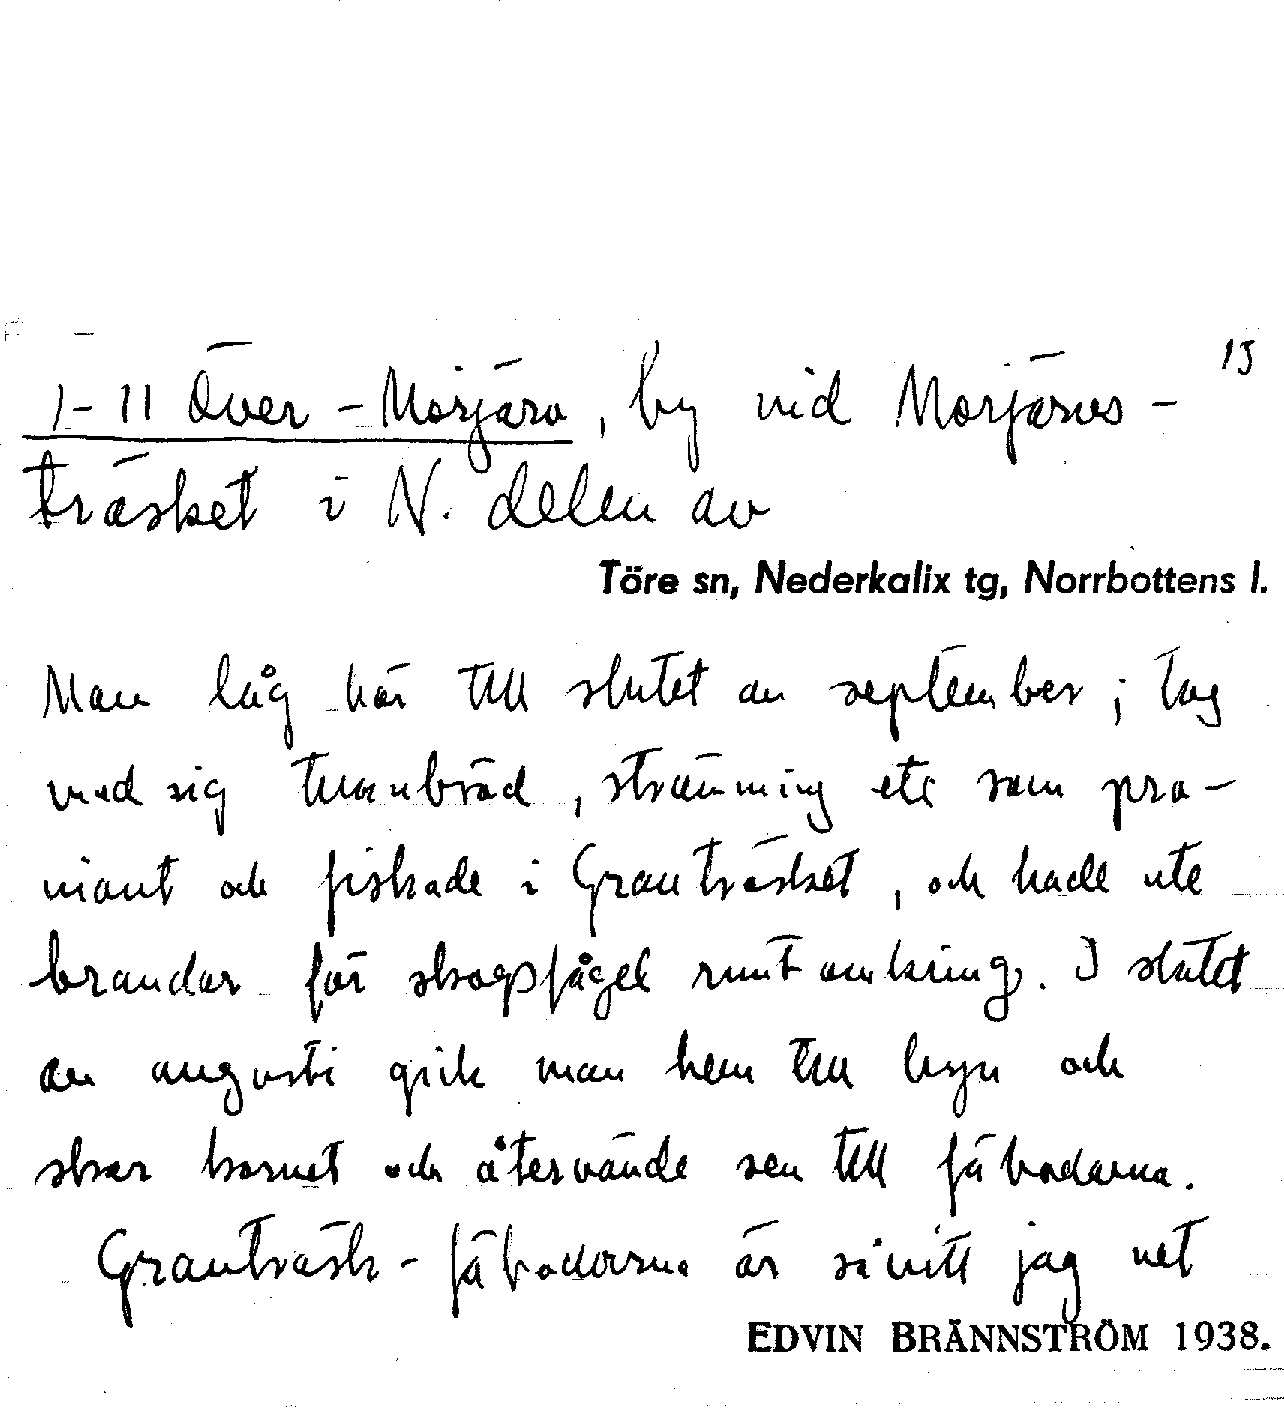 15
1-11 Över-Morjärv, by vid Morjärvs-
träsket i N. delen av
Töre sn, Nederkalix tg, Norrbottens l.
Man låg här till slutet av september; tog
med sig tunnbröd, strömming etc som pro-
viant och fiskade i Granträsket, och hade ute
brandar för skogsfågel runt omkring. I slutet
av augusti gick man hem till byn och
skar kornet och återvände sen till fäbodarna.
Granträsk-fäbodarna är såvitt jag vet
EDVIN BRÄNNSTRÖM 1938.